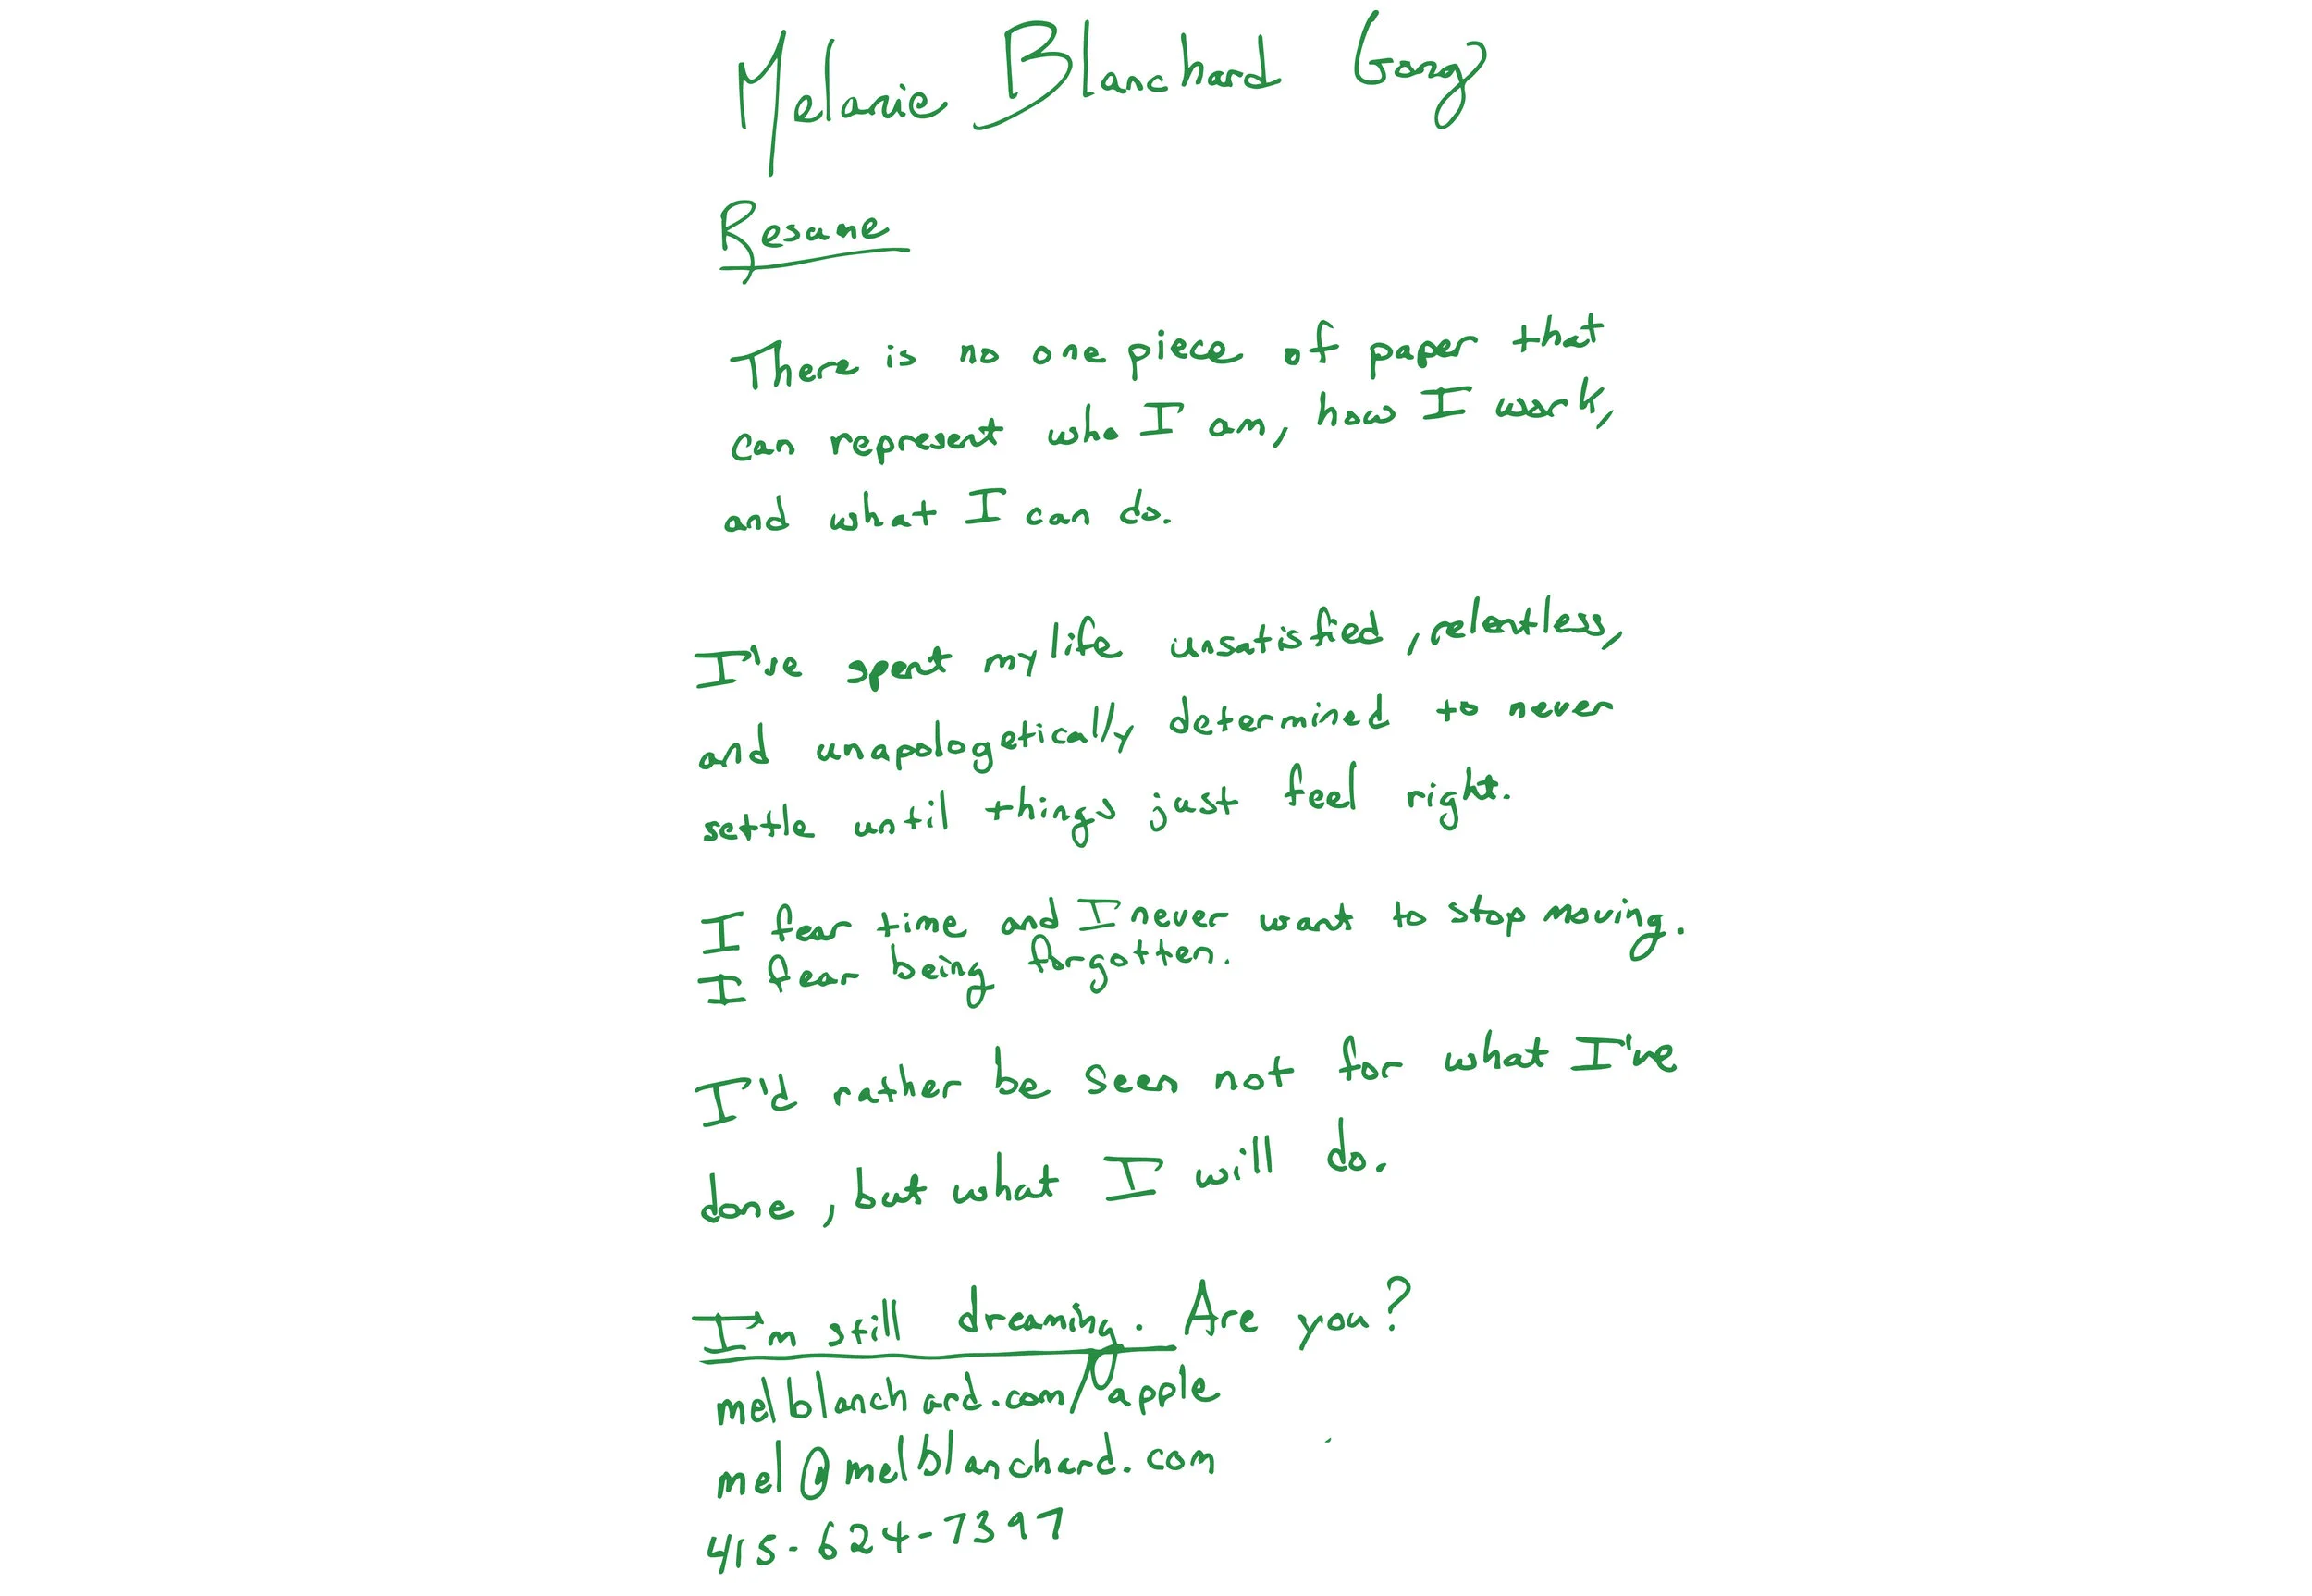 Melanie Blanchard Gong
Resume
There is no one piece of paper that
can represent who I am, how I work,
and what I can do.
I've spent my life unsatisfied, relentless,
and unapologetically determined to never
settle until things just feel right.
I fear time and I never want to stop moving.
I fear being forgotten.
I'd rather be seen not for what I've
done, but what I will do.
I'm still dreaming. Are you?
melblanchard.com/apple
mel@melblanchard.com
415-624-7397